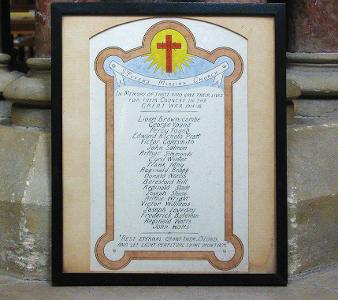 Mission Church
In Memory of those who gave their lives
for their Country in the
Great War 1914-18.
Lionel Brownscombe
George Young
Percy Young
Edward Nichols Pratt
Victor
John Salmon
Arthur Simmonds
Cyril Winter
Frank May
Reginald Bragg
Donald Norris
Beresford Hill
Reginald Slade
Joseph
Arthur Wright
Victor Williams
Joseph Loveday
Frederick Bateman
Reginald Watts
John Watts
"Rest eternal grant them, O Lord,
and let light perpetual shine upon them."